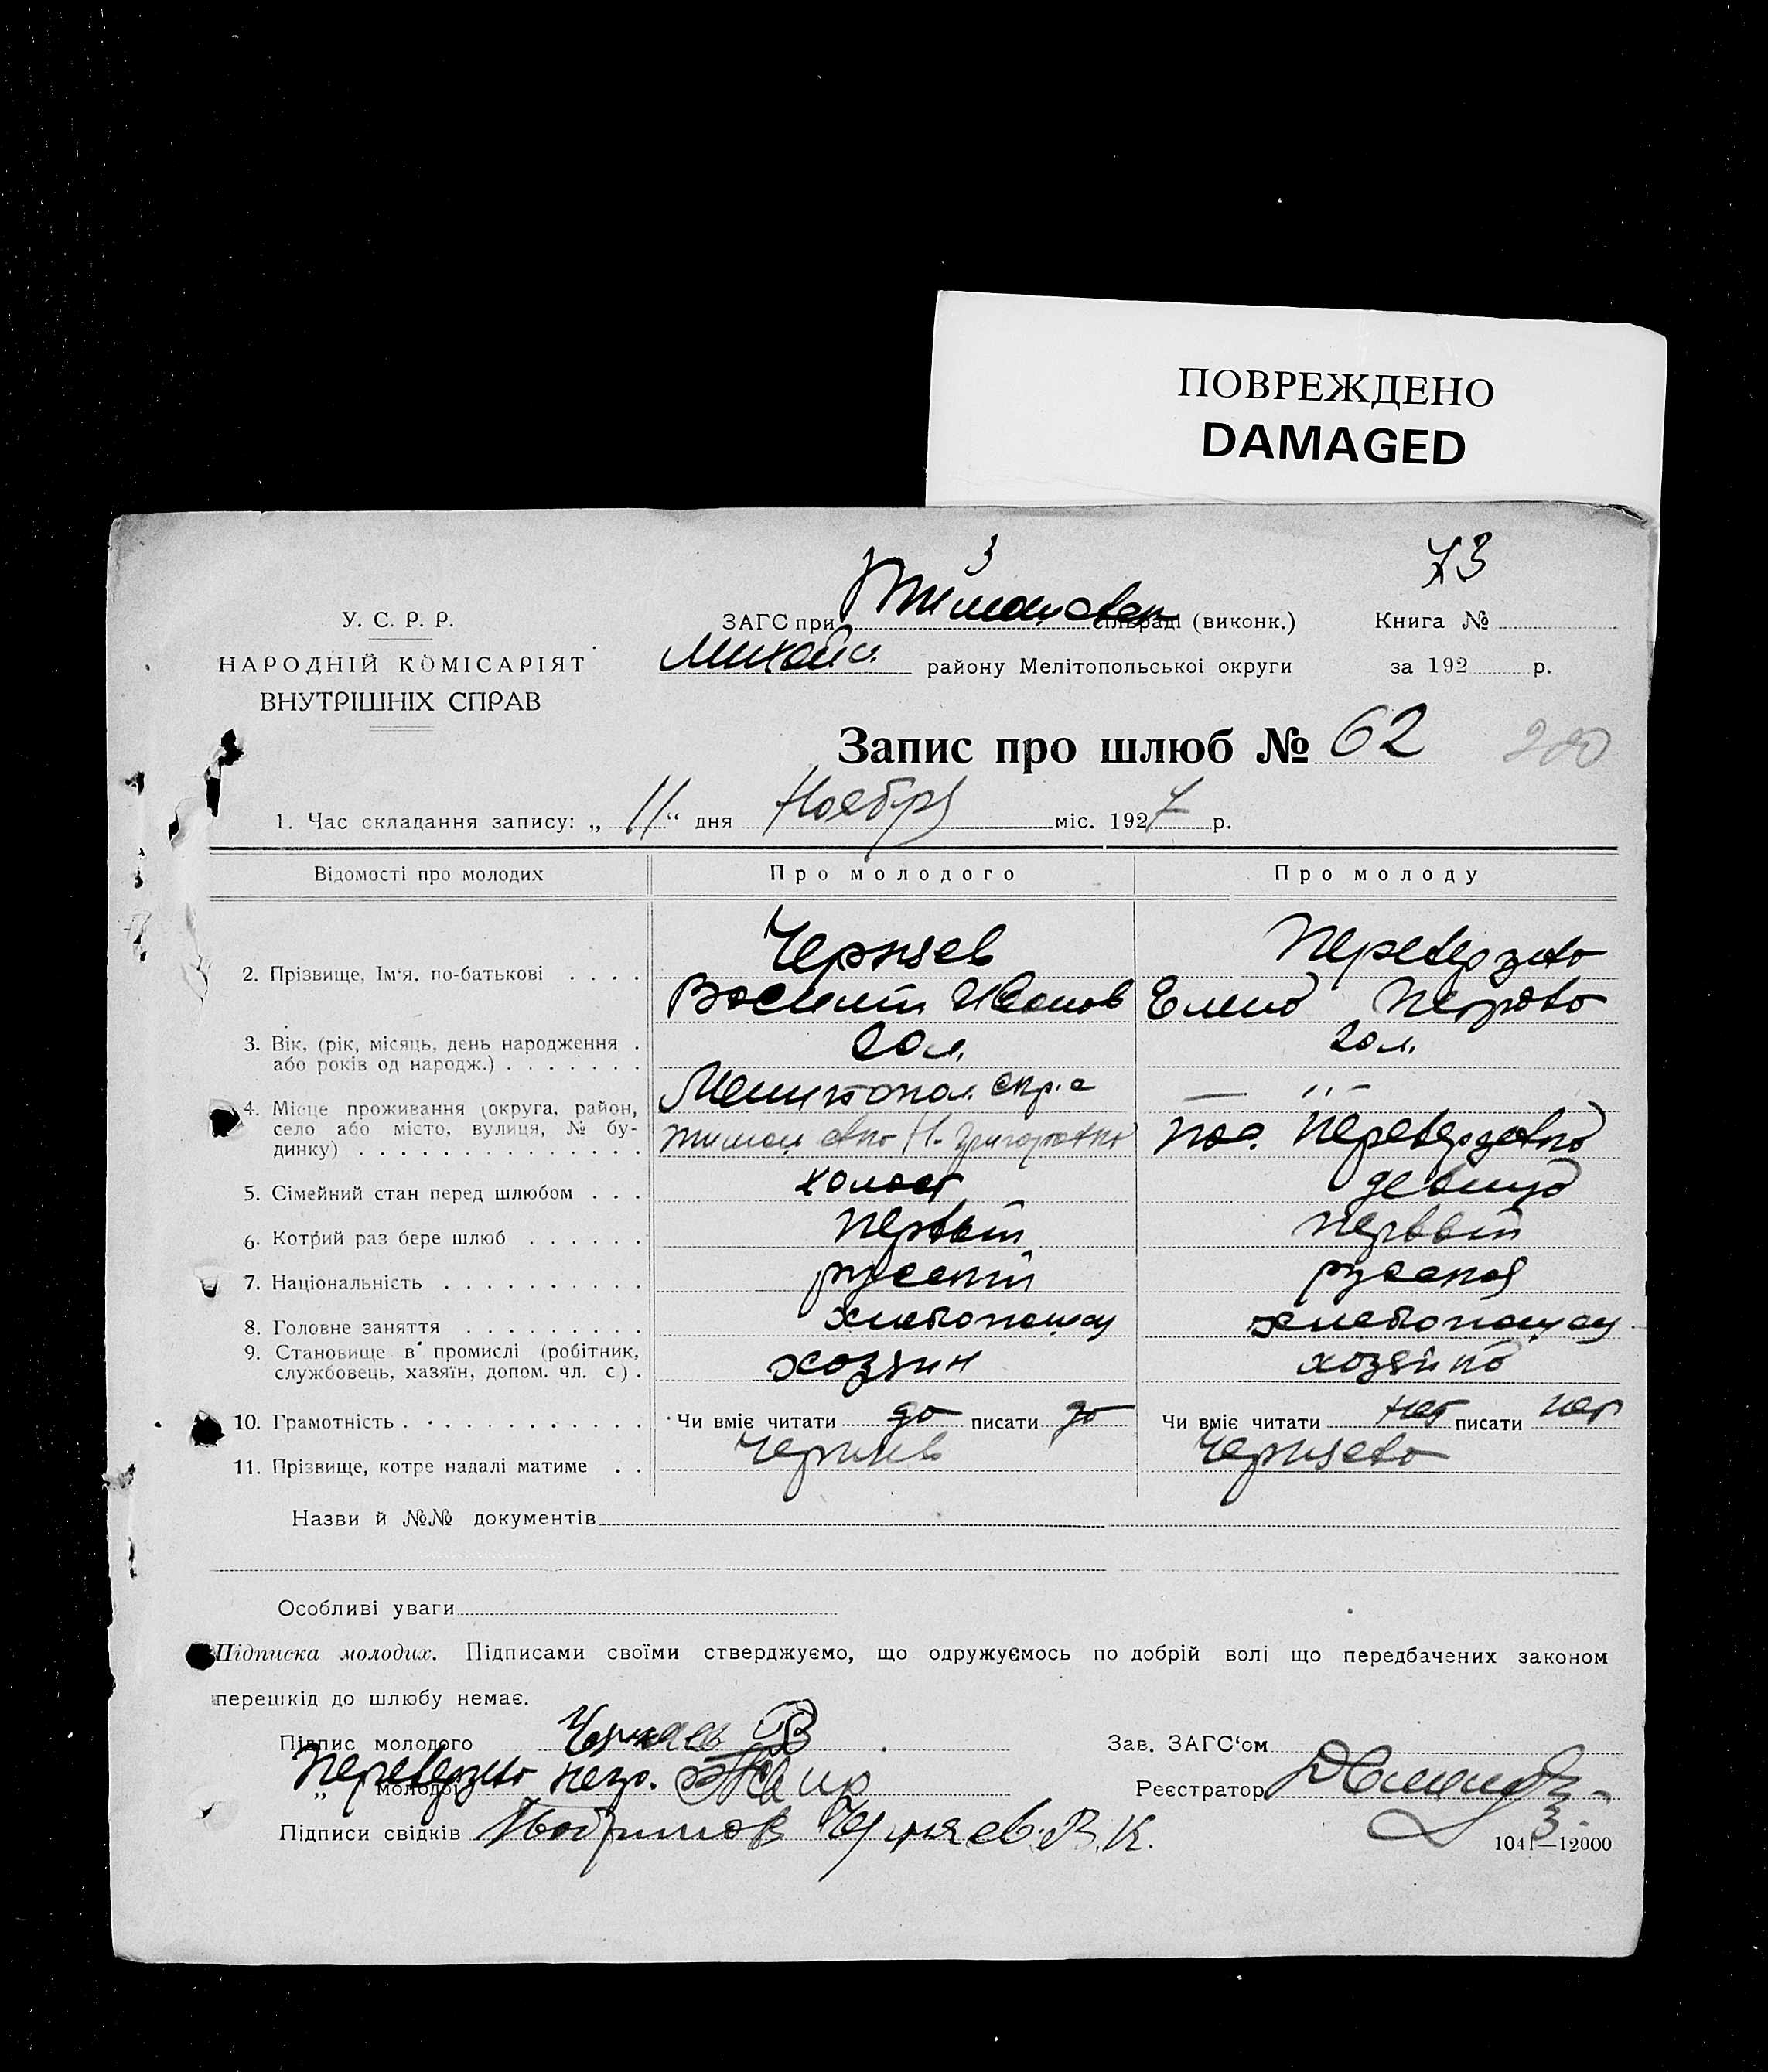 ПОВРЕЖДЕНО
DAMAGED
3
73
У. С. Р. Р.
ЗАГС при Тимошовск сільраді (виконк.) Книга №
НАРОДНІЙ КОМІСАРІЯТ
Михайл. району Мелітопольської округи за 192 р.
ВНУТРІШНІХ СПРАВ
Запис про шлюб № 62
280
1. Час складання запису: „ 11 “ дня Ноября міс. 1927 р.
Відомості про молодих Про молодого Про молоду
Черняев Перевезева
2. Прізвище, Ім‘я, по-батькові . . . .
Василий Иванов Елена Петрова
3. Вік, (рік, місяць, день народження . 20 л. 20 л.
або років од народж.) . . . . . . .
Мелитопол. окр.
4. Місце проживання (округа, район, — ,, —
село або місто, вулиця, № бу- Н. Григоровка пос.
динку) . . . . . . . . . . . . . .
5. Сімейний стан перед шлюбом . . . холост девица
6. Котрий раз бере шлюб . . . . . . первый первый
7. Національність . . . . . . . . . . русский русская
8. Головне заняття . . . . . . . . . хлебопашец хлебопашец
9. Становище в промислі (робітник, хозяин хозяйка
службовець, хазяїн, допом. чл. с ) .
10. Грамотність . . . . . . . . . . . Чи вміє читати да писати да Чи вміє читати нет писати нет
11. Прізвище, котре надалі матиме . . Черняев Черняева
Назви й №№ документів
Особливі уваги
Підписка молодих. Підписами своїми стверджуємо, що одружуємось по добрій волі що передбачених законом
перешкід до шлюбу немає.
Підпис молодого Черняев В Зав. ЗАГС‘ом
„ молодої негр. Реєстратор
Підписи свідків Черняев В. К.
1041—12000